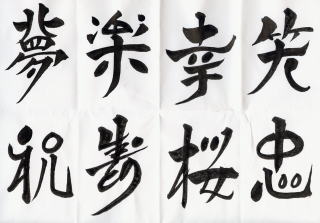 夢 楽 幸 笑
祝 寿 桜 忠